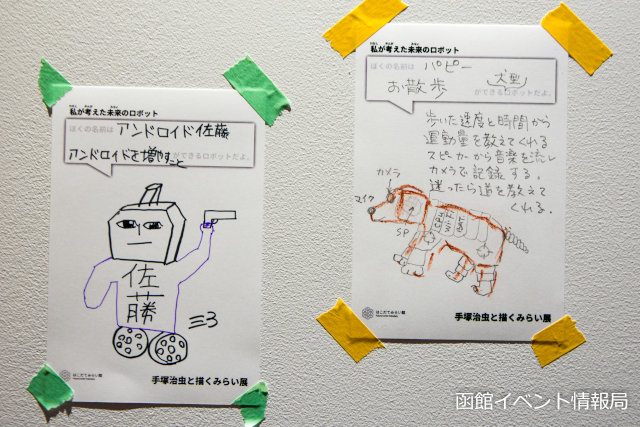 わたし かんが みらい
私が考えた未来のロボット
ぼくの名前は アンドロイド佐藤
アンドロイドを増やすこと ができるロボットだよ。
佐藤
はこだてみらい館
手塚治虫と描くみらい展
わたし かんが みらい
私が考えた未来のロボット
ぼくの名前は パピー
犬型
お散歩 ができるロボットだよ。
歩いた速度と時間から
運動量を教えてくれる
スピーカーから音楽を流し
カメラで記録する。
迷ったら道を教えて
くれる。
カメラ
マイク
SP
はこだてみらい館
手塚治虫と描くみらい展
函館イベント情報局